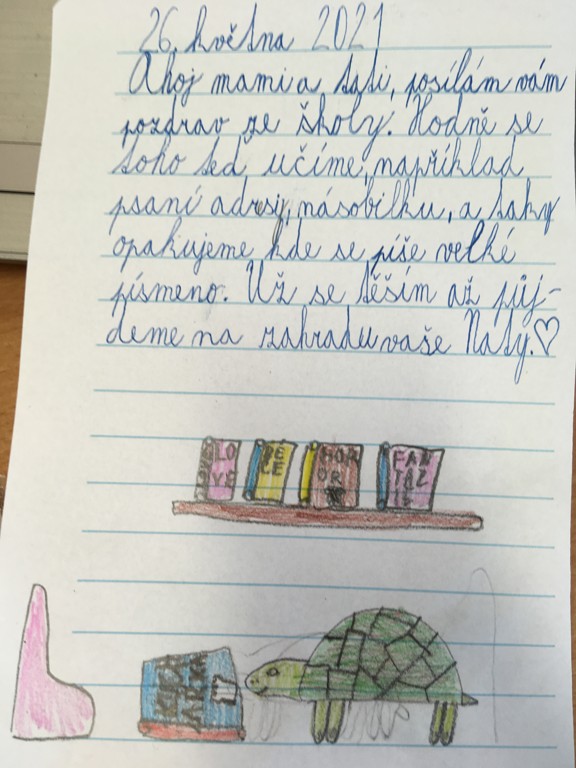 26. května 2021
Ahoj mami a tati, posílám vám
pozdrav ze školy. Hodně se
toho teď učíme, například
psaní adresy, násobilku, a taky
opakujeme kde se píše velké
písmeno. Už se těším až půj-
deme na zahradu vaše Naty.♡
LO
VE
HOR
OR
FAN
TAZ
IE